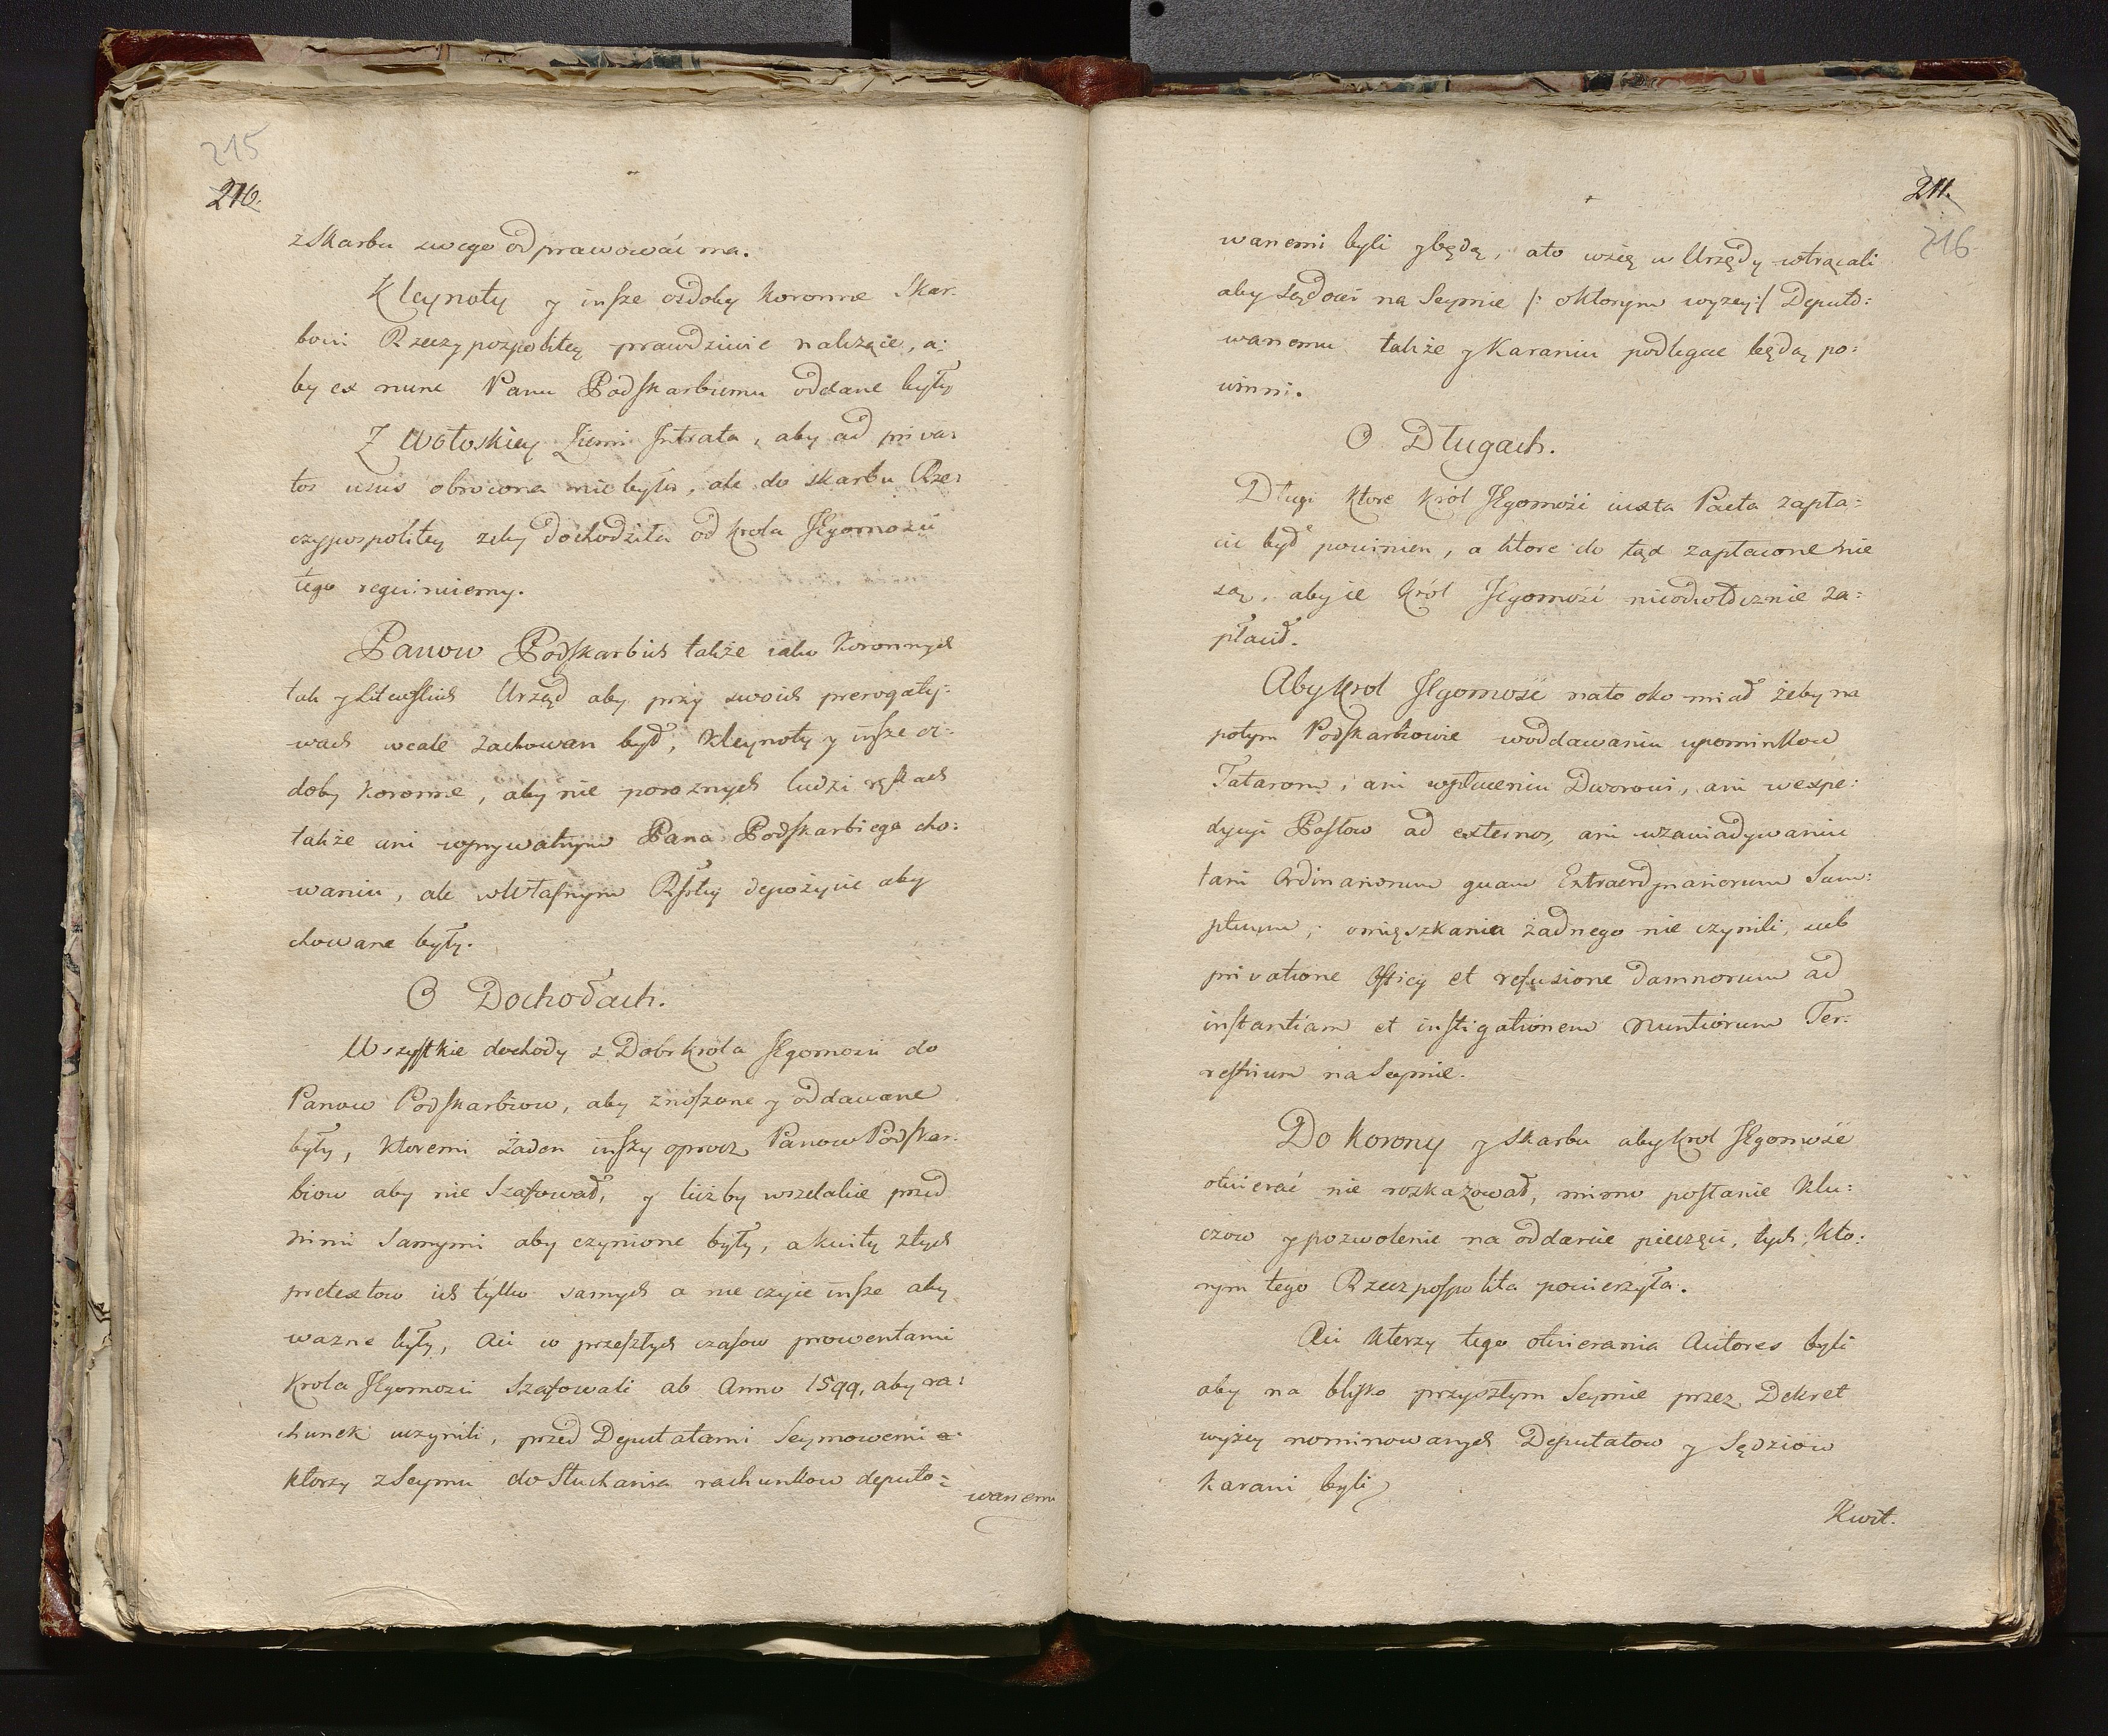 215
210.
z Skarbu swego odprawować ma.
Kleynoty y insze ozdoby koronne Skar:
bowi Rzeczypospolitey prawdziwie należące, a:
by ex nunc Panu Podskarbiemu oddane były
Z Wołoskiey Ziemi Intrata, aby ad priva:
tos usus obrocona nie była, ale do skarbu Rze:
czypospolitey żeby dochodziła od krola Jegomości
tego requiruiemy.
Panow Podskarbich także iako Koronnych
tak y Litewskich Urząd aby przy swoich prerogaty:
wach wcale zachowan był, Kleynoty y insze oz:
doby koronne, aby nie poroznych ludzi rękach
także ani wprywatnym Pana Podskarbiego cho:
waniu, ale wWłasnym Rpltey depozycie aby
chowane były.
O Dochodach.
Wszystkie dochody z Dobr krola Jegomości do
Panow Podskarbiow, aby znoszone y oddawane
były, ktoremi żaden inszy oprocz Panow Podskar:
biow aby nie Szafował, y liczby wszelakie przed
nimi Samymi aby czynione były, a kwity z tych
pretextow ich tylko samych a nie czyie insze aby
wazne były, Aci co przeszłych czasow prowentami
Krola Jegomości Szafowali ab Anno 1599, aby ra:
chunek uczynili, przed Deputatami Seymowemi a:
ktorzy z Seymu do Słuchania rachunkow deputo:
wanemi
211.
216
wanemi byli y będą, ato wżię w Urzędy wtrącali
aby sądowi na Seymie /: oktorym wyzey :/ Deputo:
wanemu także y Karaniu podlegac będą po:
winni.
O Długach.
Długi ktore Król Jegomość iuxta Pacta zapła:
cić był powinien, a ktore do tąd zapłacone nie
są, aby ie Król Jegomość nieodwłocznie za:
płacił.
Aby Krol Jegomość nato oko miał żeby na
potym Podskarbiowie woddawaniu upominkow
Tatarom, ani wpłaceniu Dworowi, ani wexpe:
dycyi Posłow ad externos, ani wzawiadywaniu
tam Ordinariorum quam Extraordynariorum Sum:
ptuum, omięszkania żadnego nie czynili, sub
privatione Officij et refusione damnorum ad
instantiam et instigationem Nuntiorum Ter:
restrium na Seymie.
Do Korony y skarbu aby Krol Jegomość
otwierać nie rozkazował, mimo posłanie Klu:
czow y pozwolenie na oddanie pieczęci, tych, kto:
rym tego Rzeczpospolita powierzyła.
Aci ktorzy tego otwierania Autores byli
aby na blisko przyszłym Seymie przez Dekret
wyżey nominowanych Deputatow y Sędziow
karani byli
Kwit.